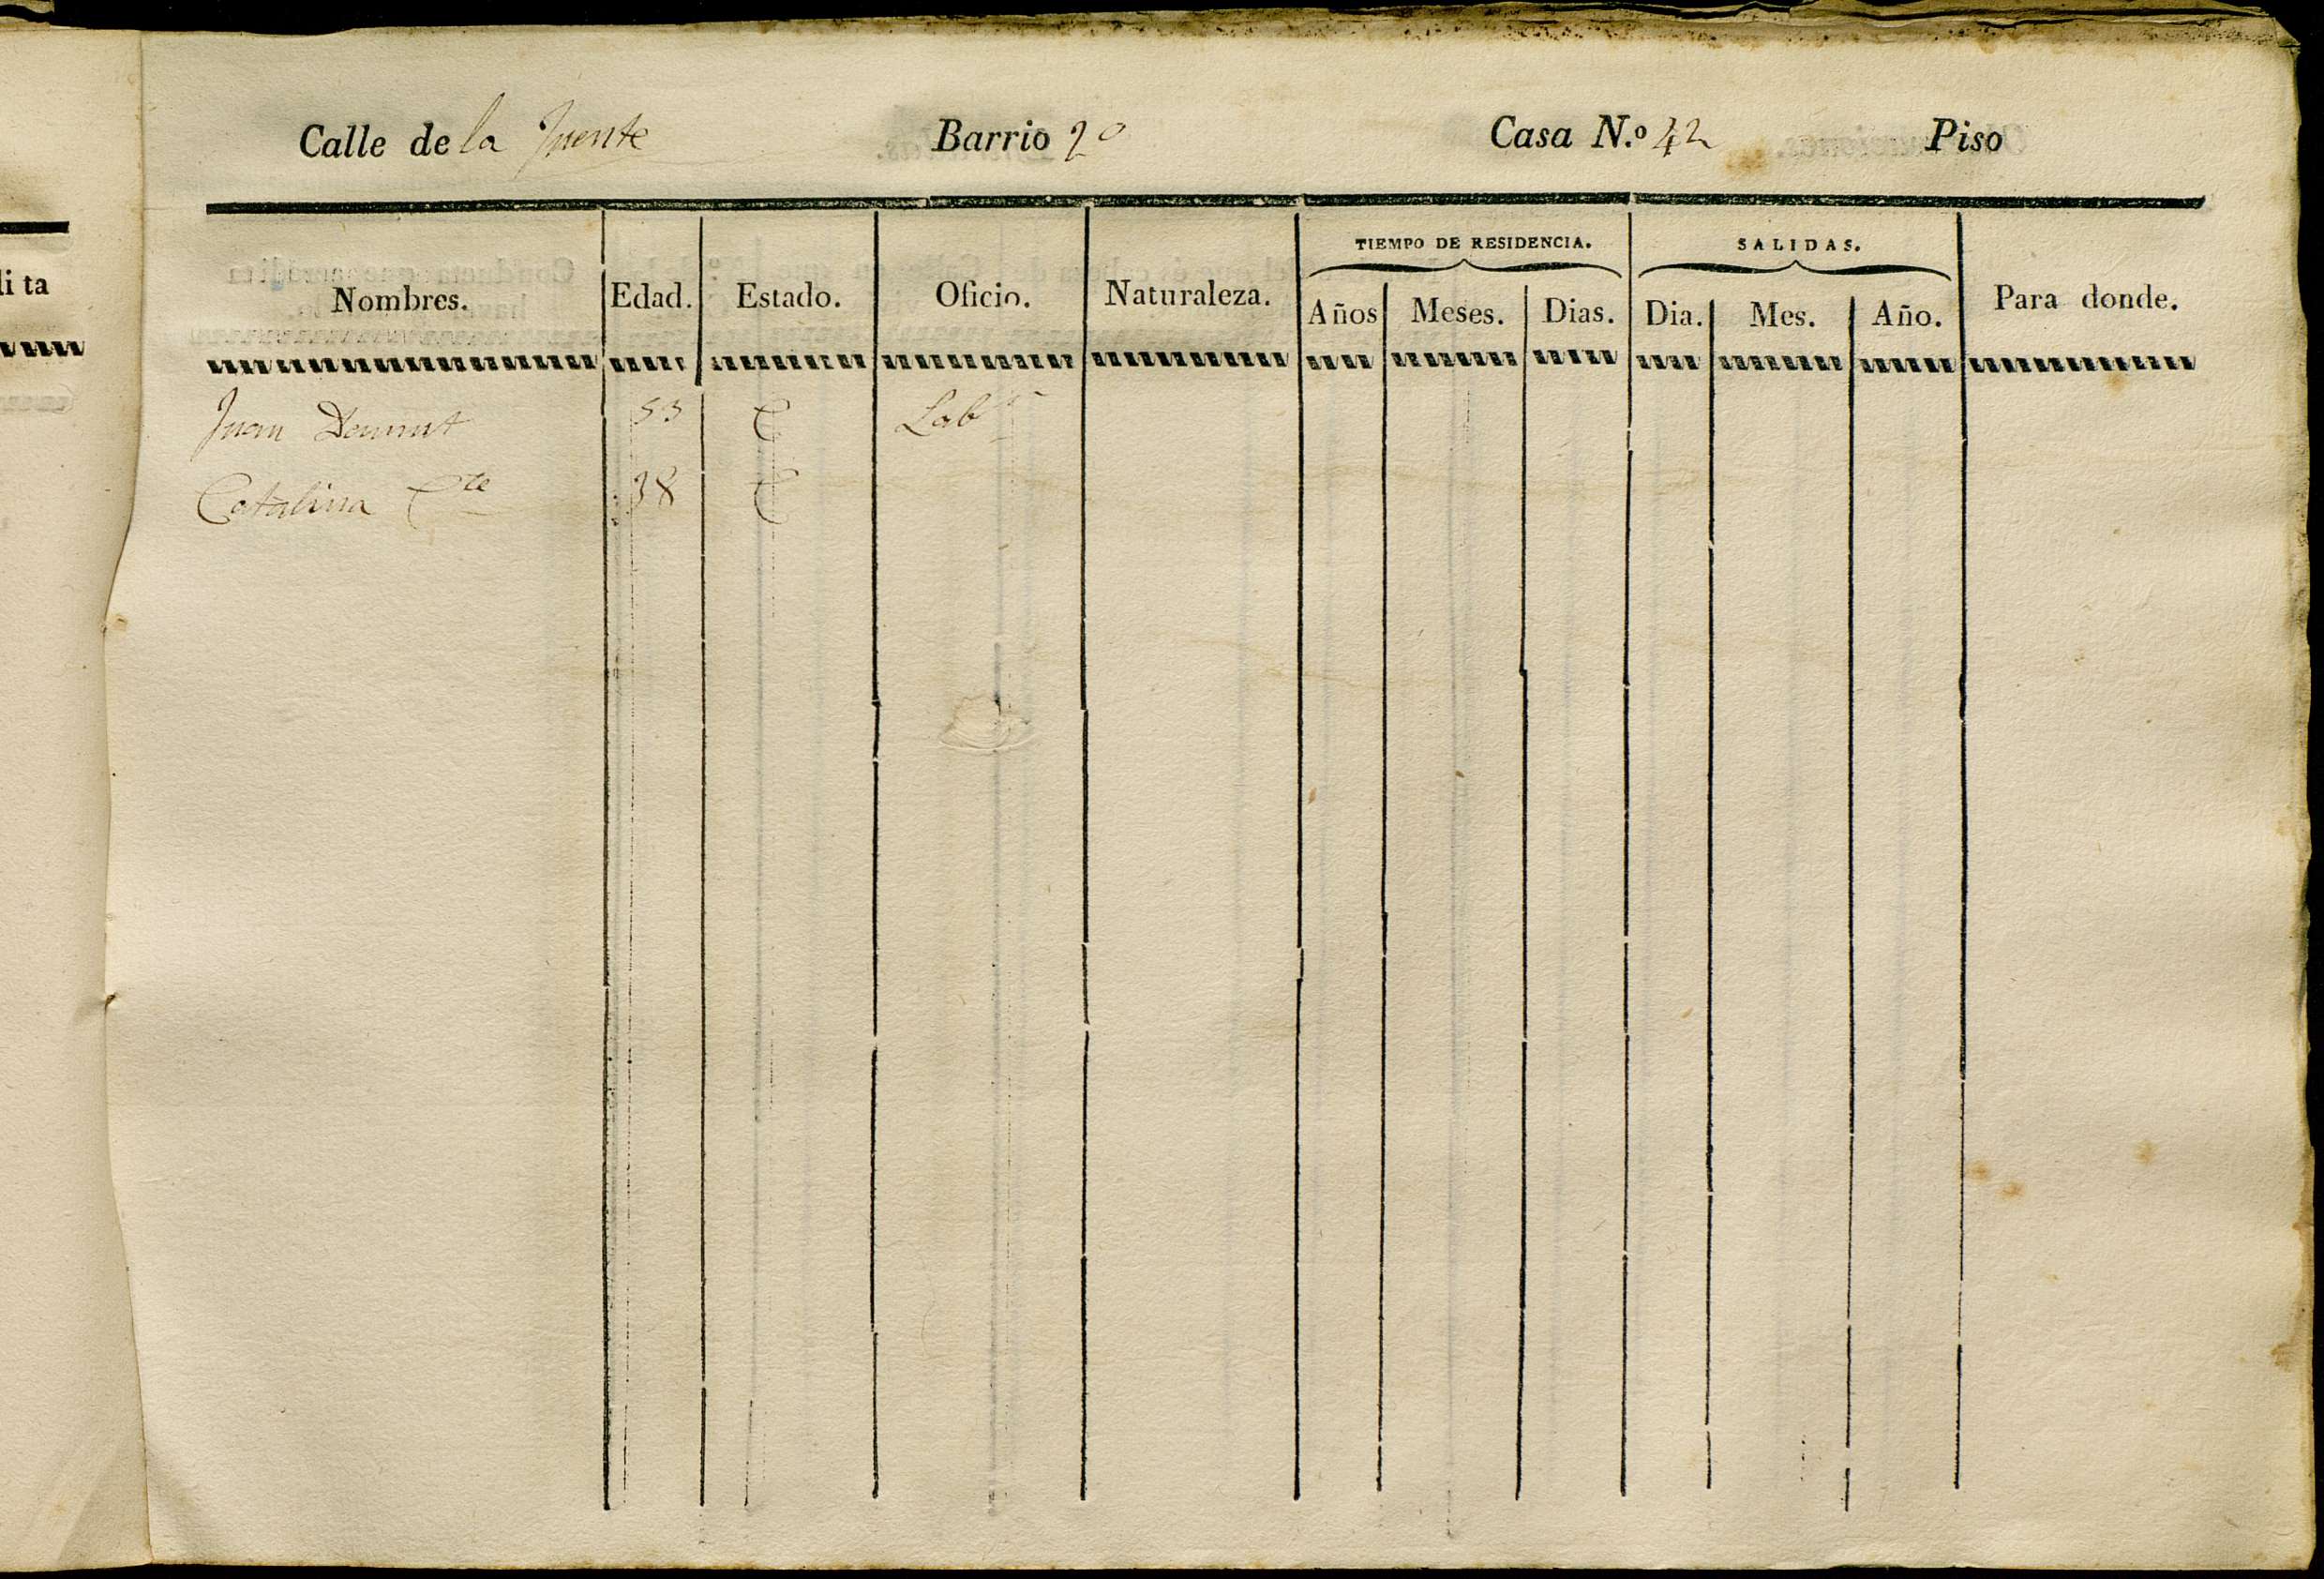 li ta
Calle de la Fuente Barrio 2º Casa N.º 42 Piso
TIEMPO DE RESIDENCIA. SALIDAS.
Nombres. Edad. Estado. Oficio. Naturaleza. Años Meses. Dias. Dia. Mes. Año. Para donde.
Juan 53 C Lab.r
Catalina 38 C